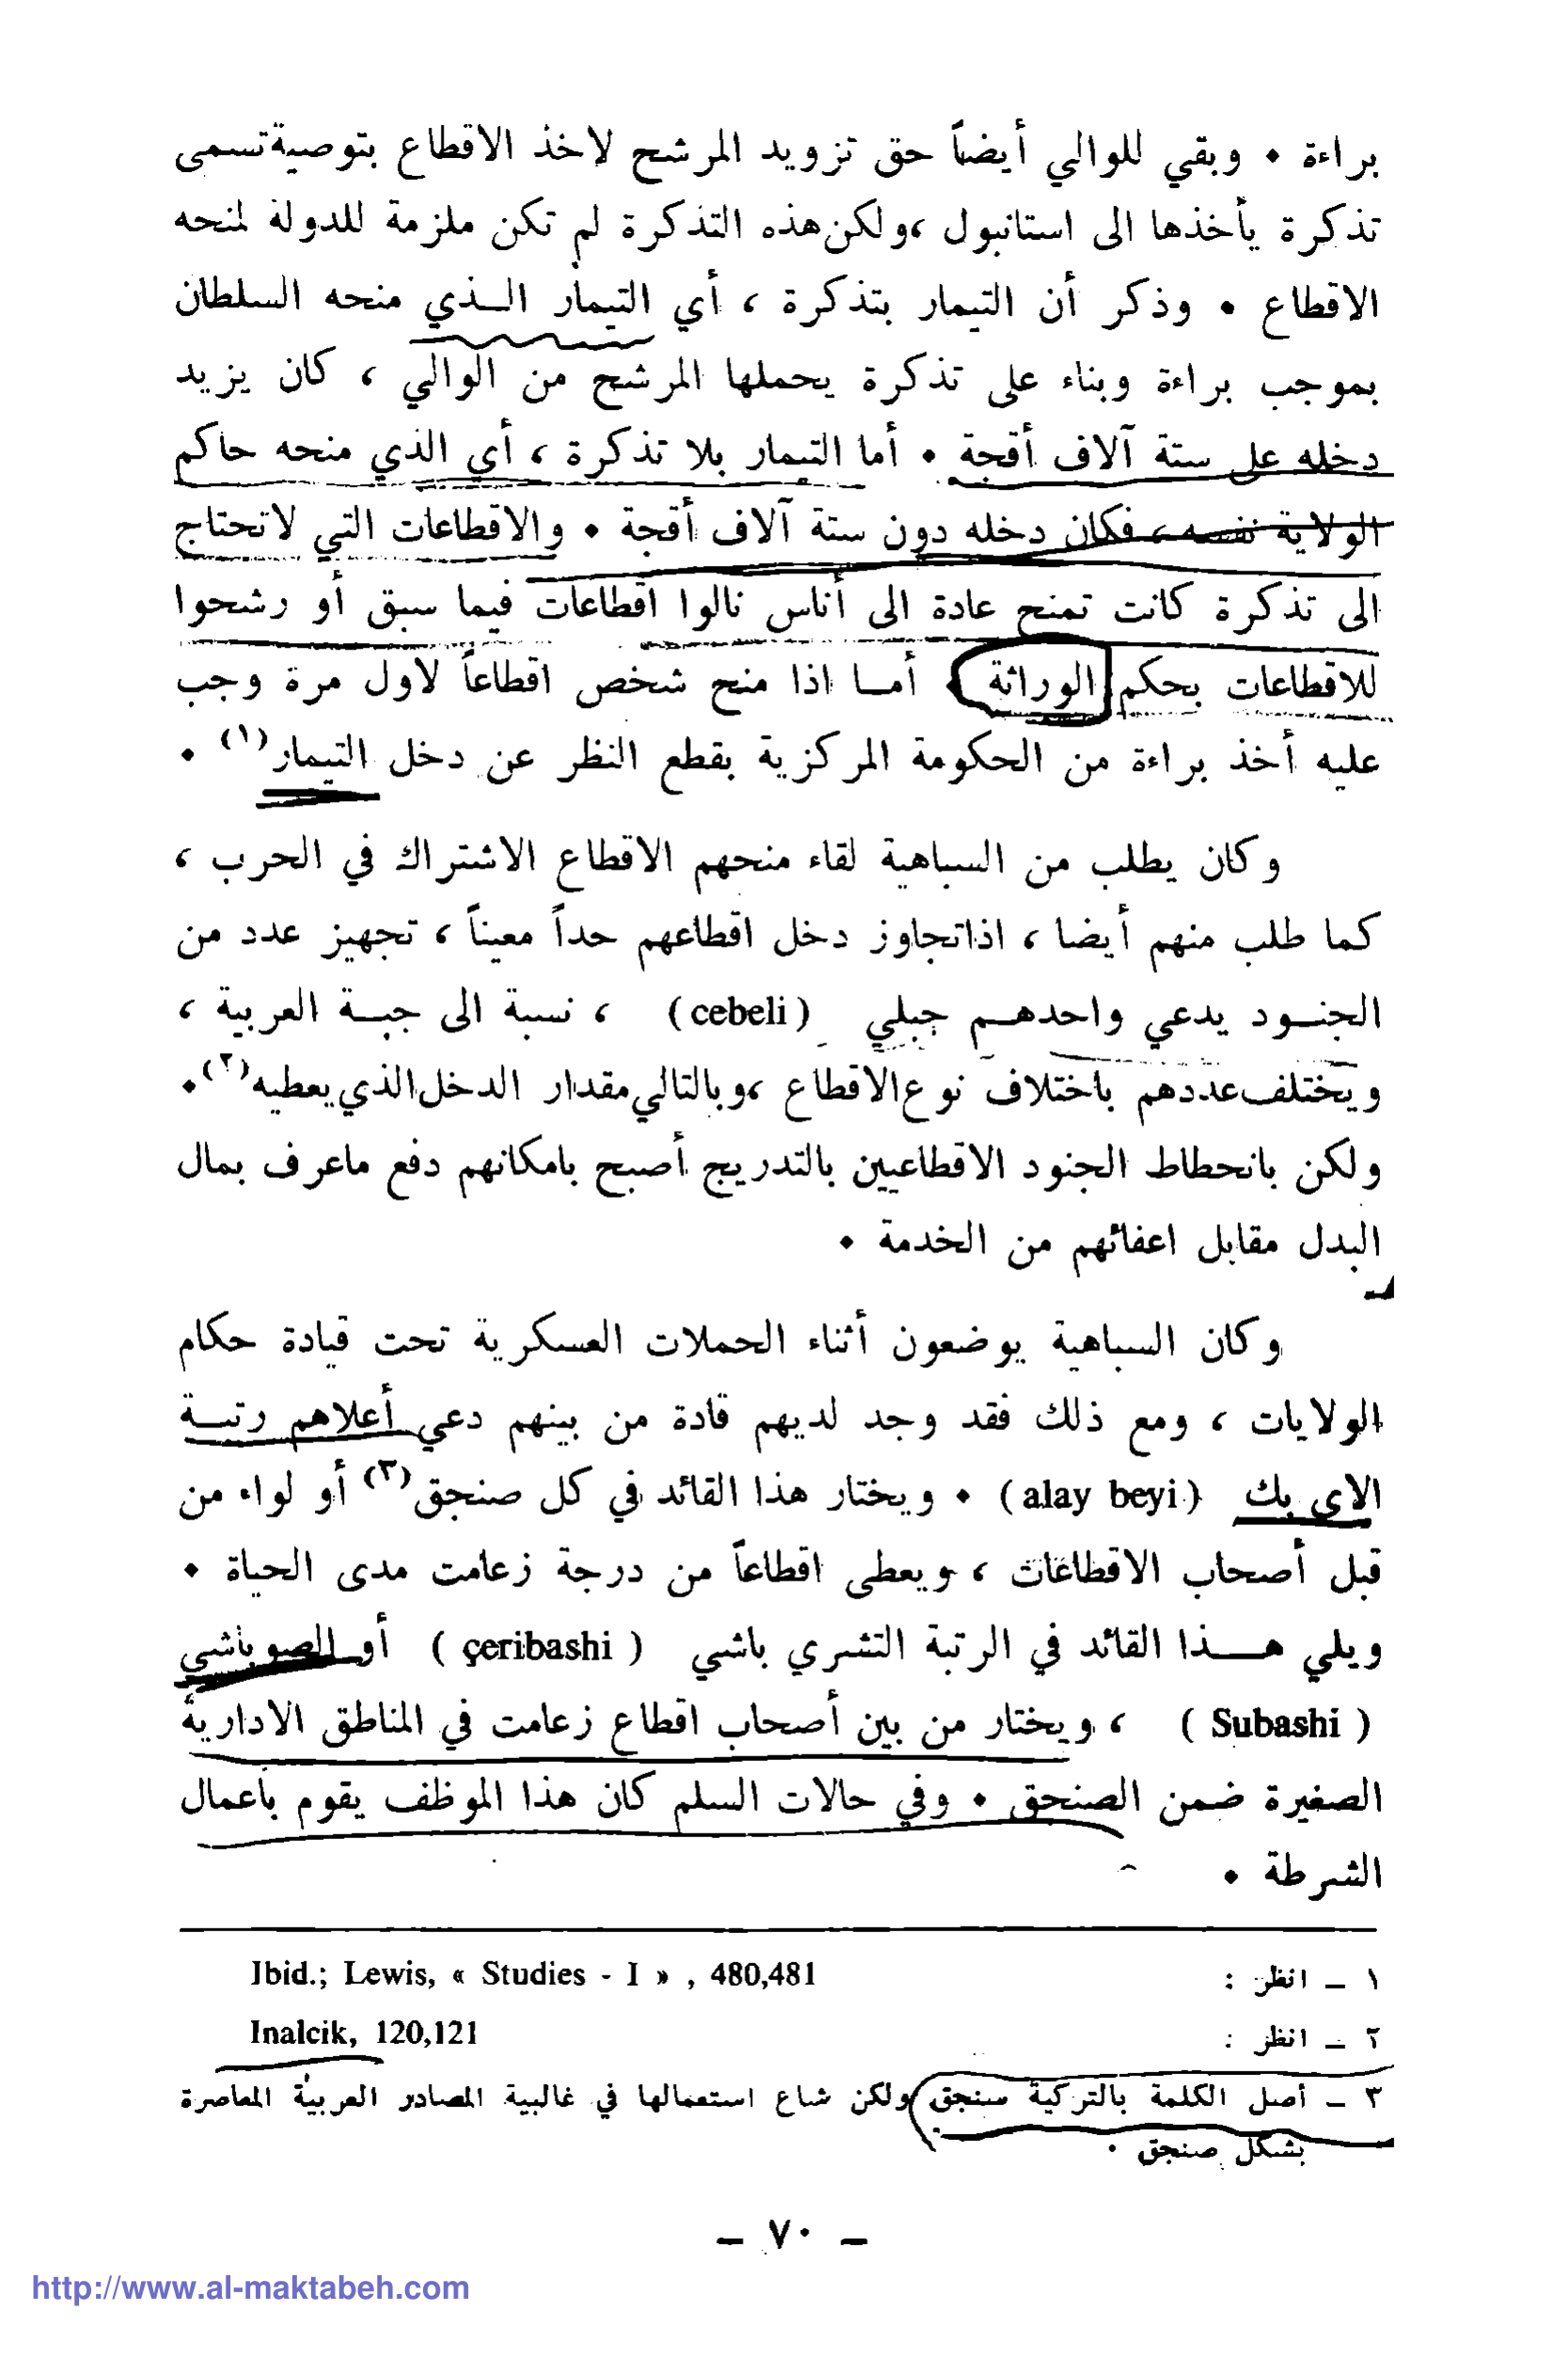 براءة ٠ وبقي للوالي أيضاً حق تزويد المرشح لاخذ الاقطاع بتوصية تسمى
تذكرة يأخذها الى استانبول ،ولكن هذه التذكرة لم تكن ملزمة للدولة لمنحه
الاقطاع ٠ وذكر أن التيمار بتذكرة ، أي التيمار الـذي منحه السلطان
بموجب براءة وبناء على تذكرة يحملها المرشح من الوالي ، كان يزيد
دخله على ستة آلاف أقجة ٠ أما التيمار بلا تذكرة ، أي الذي منحه حاكم
الولاية نفسه ، فكان دخله دون ستة آلاف أقجة ٠ والاقطاعات التي لاتحتاج
الى تذكرة كانت تمنح عادة الى أناس نالوا اقطاعات فيما سبق أو رشحوا
للاقطاعات بحكم الوراثة ٠ أمـا اذا منح شخص اقطاعاً لاول مرة وجب
عليه أخذ براءة من الحكومة المركزية بقطع النظر عن دخل التيمار(١) ٠
وكان يطلب من السباهية لقاء منحهم الاقطاع الاشتراك في الحرب ،
كما طلب منهم أيضا ، اذاتجاوز دخل اقطاعهم حداً معيناً ، تجهيز عدد من
الجنـود يدعي واحدهـم جبلي (cebeli) ، نسبة الى جبـة العربية ،
ويختلف عددهم باختلاف نوع الاقطاع ،وبالتالي مقدار الدخل الذي يعطيه(٢)٠
ولكن بانحطاط الجنود الاقطاعيين بالتدريج أصبح بامكانهم دفع ماعرف بمال
البدل مقابل اعفائهم من الخدمة ٠
وكان السباهية يوضعون أثناء الحملات العسكرية تحت قيادة حكام
الولايات ، ومع ذلك فقد وجد لديهم قادة من بينهم دعي أعلاهم رتبـة
الاي بك (alay beyi) ٠ ويختار هذا القائد في كل صنجق(٣) أو لواء من
قبل أصحاب الاقطاعات ، ويعطى اقطاعاً من درجة زعامت مدى الحياة ٠
ويلي هـذا القائد في الرتبة التشري باشي ( çeribashi ) أو الصوباشي
( Subashi ) ، ويختار من بين أصحاب اقطاع زعامت في المناطق الادارية
الصغيرة ضمن الصنجق ٠ وفي حالات السلم كان هذا الموظف يقوم بأعمال
الشرطة ٠
١ ـ انظر : Ibid.; Lewis, « Studies - I » , 480,481
٢ ـ انظر : Inalcik, 120,121
٣ ـ أصل الكلمة بالتركية سنجق ولكن شاع استعمالها في غالبية المصادر العربية المعاصرة
بشكل صنجق ٠
ـ ٧٠ ـ
http://www.al-maktabeh.com